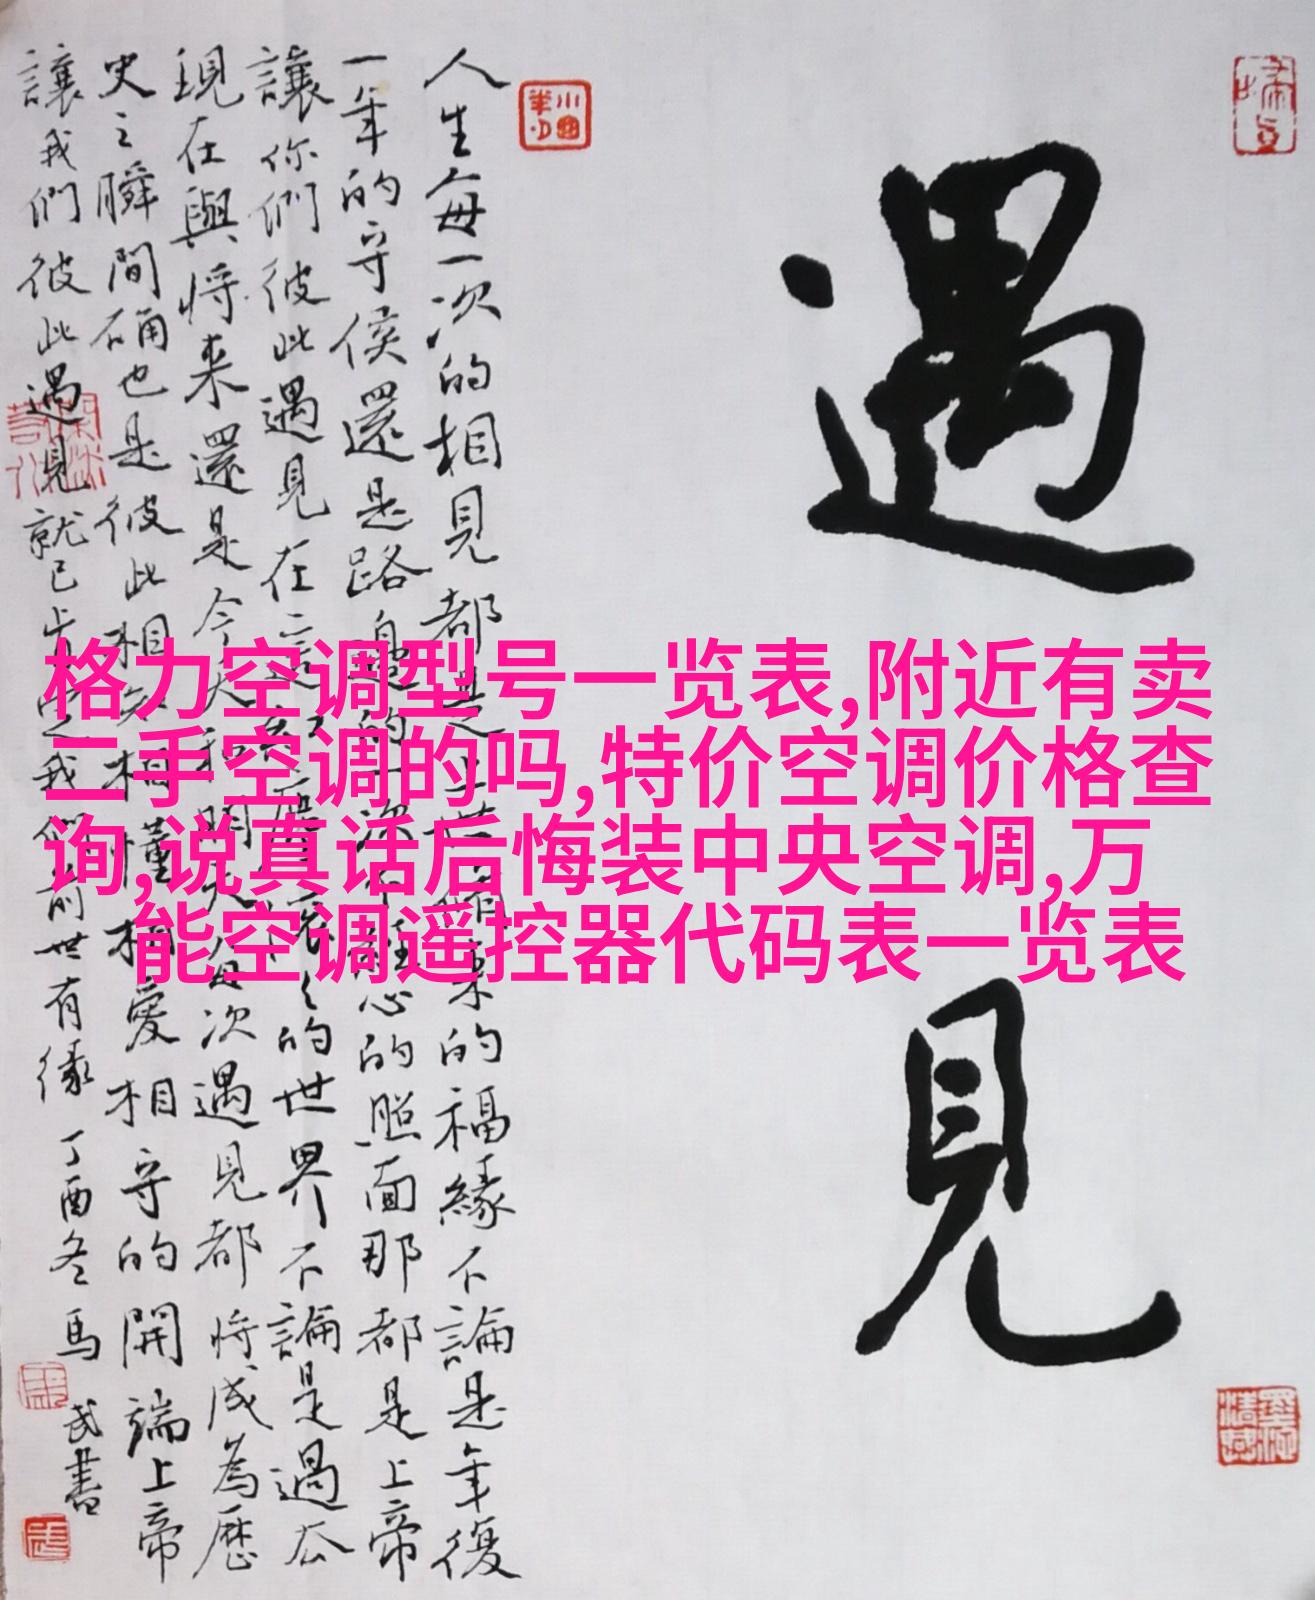 遇見
人生每一次的相見都是上世修来的福緣不論是年復
一年的守侯還是路邊的一次不經意的照面那都是上帝
讓你們彼此遇見在這塵滾々的世界不論是過去
現在與將来還是今天和明天每次遇見都將成為歷
史之瞬間確也是彼此相知相懂相愛相守的開端上帝
讓我們彼此遇見就已肯定我們前世有緣 丁酉冬馬武書
格力空调型号一览表,附近有卖
二手空调的吗,特价空调价格查
询,说真话后悔装中央空调,万
能空调遥控器代码表一览表